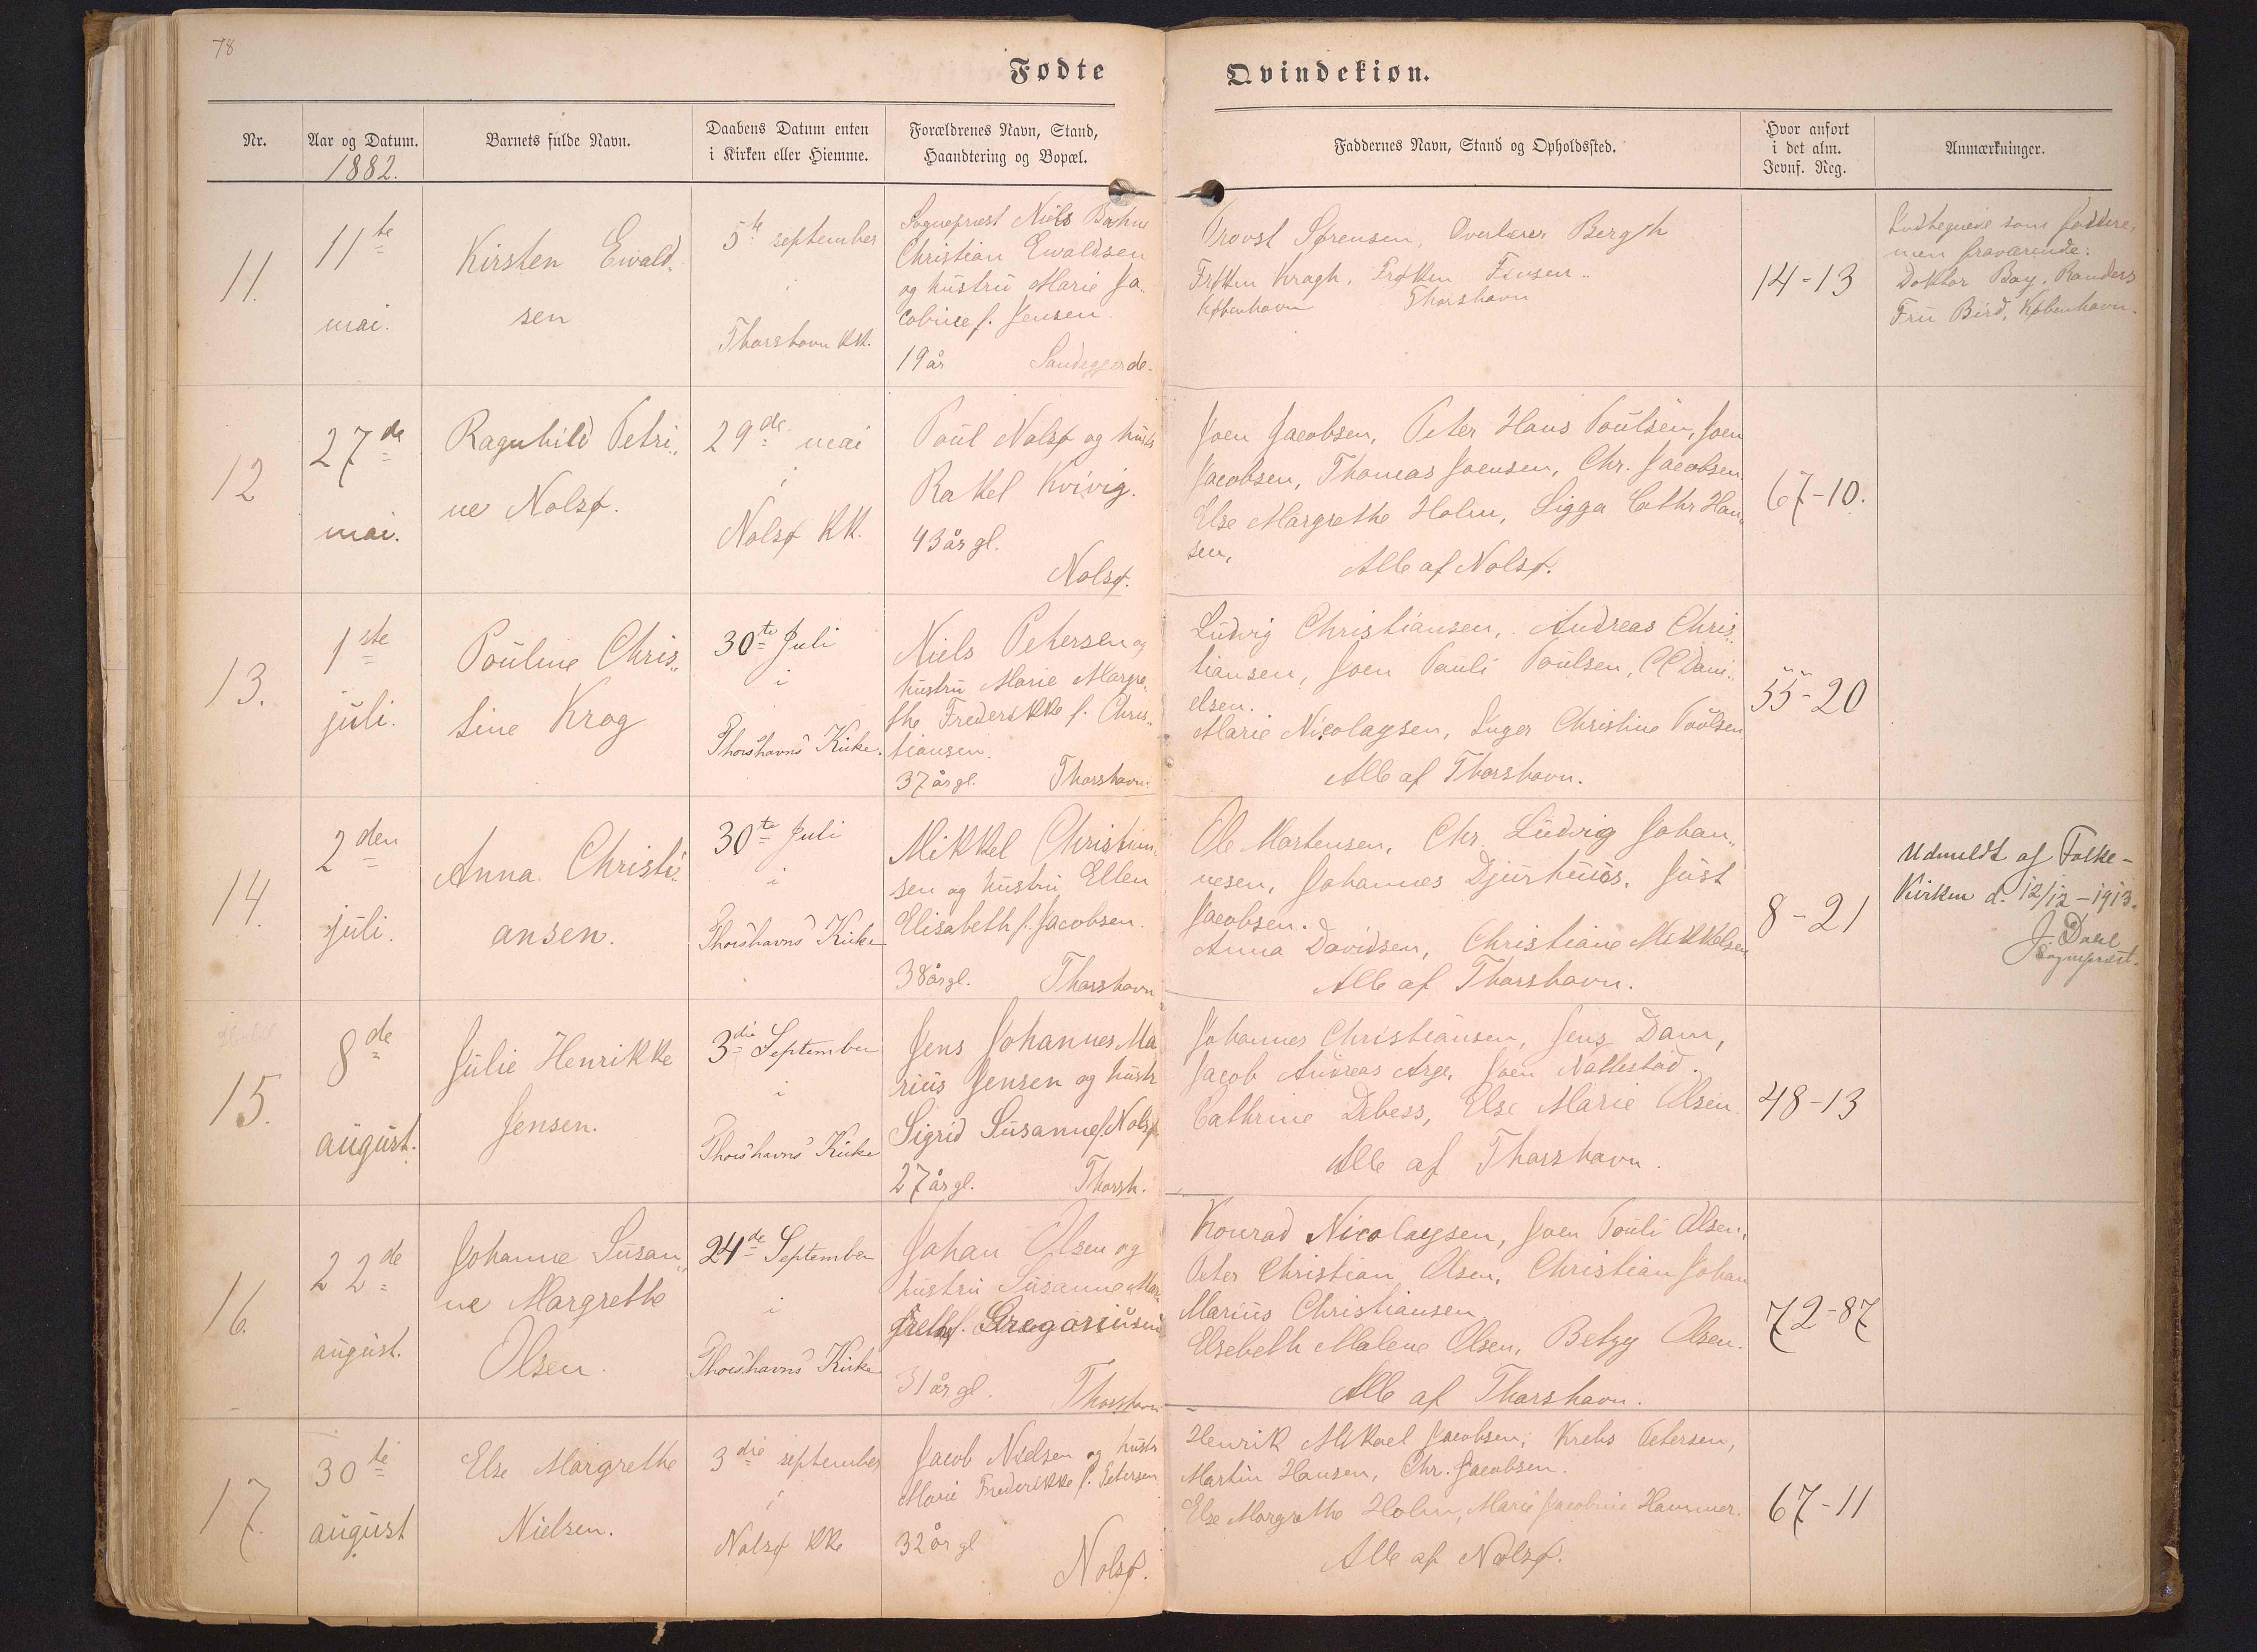 78
Fødte Qvindekiøn.
Nr.
Aar og Datum.
1882.
Barnets fulde Navn.
Daabens Datum enten
i Kirken eller Hiemme.
Forældrenes Navn, Stand,
Haandtering og Bopæl.
Faddernes Navn, Stand og Opholdssted.
Hvor anført
i det alm.
Jevnf. Reg.
Anmærkninger.
11.
11te
mai.
Kirsten Ewald„
sen
5te september
i
Thorshavn KK.
Sognepræst Niels
Christian Ewaldsen
og hustru Marie Ja„
cobine f. Jensen
19 år Sandegjerde.
Provst Sørensen, Overlærer Bergh
Frøken Kragh, Frøken Finsen
København Thorshavn
14-13
Indtegnede som faddere,
men fraværende:
Doktor Bay, Randers
Fru Bird, København.
12
27de
mai.
Ragnhild Petri„
ne Nolsø.
29de mai
i
Nolsø KK.
Poul Nolsø og hustr
Rakel Kvivig.
43 år gl.
Nolsø.
Joen Jacobsen, Peter Hans Poulsen, Joen
Jacobsen, Thomas Joensen, Chr. Jacobsen
Else Margrethe Holm, Sigga Cathr Han„
sen,
Alle af Nolsø.
67-10.
13.
1ste
juli.
Pouline Chris„
tine Krog
30te Juli
i
Thorshavns Kirke.
Niels Petersen og
hustru Marie Margre„
the Frederikke f. Chris„
tiansen.
37 år gl. Thorshavn.
Ludvig Christiansen, Andreas Chris„
tiansen, Joen Pauli Poulsen, Dani„
elsen.
Marie Nicolaysen, Inger Christine Poulsen
Alle af Thorshavn.
55-20
14.
2den
juli.
Anna Christi„
ansen.
30te Juli
i
Thorshavns Kirke
Mikkel Christian„
sen og hustru Ellen
Elisabeth f. Jacobsen.
38 år gl. Thorshavn
Ole Mortensen, Chr. Ludvig Johan„
nesen, Johannes Djurhuus, Just
Jacobsen.
Anna Davidsen, Christiane Mikkelsen
Alle af Thorshavn.
8-21
Udmeldt af Folke-
Kirken d. 12/12-1913.
J. Dahl
Sognepræst.
15.
8de
august.
Julie Henrikke
Jensen.
3die September
i
Thorshavns Kirke
Jens Johannes Ma
rius Jensen og hustr
Sigrid Susanne f. Nolsø
27 år gl. Thorsh.
Johannes Christiansen, Jens Dam,
Jacob Andreas Arge, Joen Nattestad.
Cathrine Debess, Else Marie Olsen
Alle af Thorshavn.
48-13
16.
22de
august.
Johanne Susan„
ne Margrethe
Olsen.
24de September
i
Thorshavns Kirke
Johan Olsen og
hustru Susanne Mar„
grethe f. Gregoriusen
31 år gl. Thorshavn
Konrad Nicolaysen, Joen Pouli Olsen,
Peter Christian Olsen, Christian Johan
Marius Christiansen
Elsebeth Malene Olsen, Betzy Olsen.
Alle af Thorshavn.
72-87
17.
30te
august
Else Margrethe
Nielsen.
3die september
i
Nolsø KKe
Jacob Nielsen og hustr
Marie Frederikke f. Petersen
32 år gl
Nolsø.
Henrik Mikael Jacobsen, Krebs Petersen,
Martin Hansen, Chr. Jacobsen.
Else Margrethe Holm, Marie Jacobine Hammer.
Alle af Nolsø.
67-11